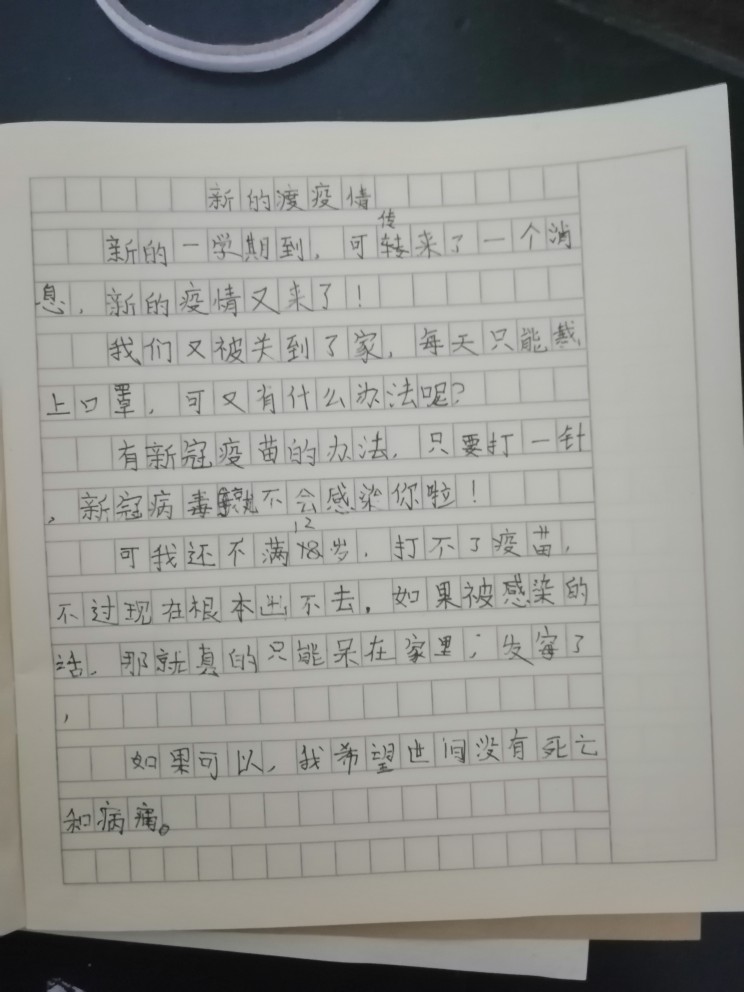 新的渡疫情
新的一学期到，可传来了一个消
息，新的疫情又来了！
我们又被关到了家，每天只能戴
上口罩，可又有什么办法呢？
有新冠疫苗的办法，只要打一针
，新冠病毒就不会感染你啦！
可我还不满12岁，打不了疫苗，
不过现在根本出不去。如果被感染的
话，那就真的只能呆在家里；发霉了
，
如果可以，我希望世间没有死亡
和病痛。